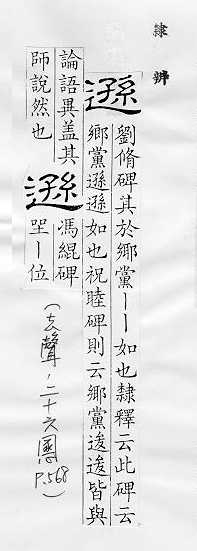 隸辨
遜
劉脩碑其於鄉黨丨丨如也隸釋云此碑云
鄉黨遜遜如也祝睦碑則云鄉黨逡逡皆與
論語異盖其
師說然也
遜
馮緄碑
丨位
(去聲,二十六慁 P.568)